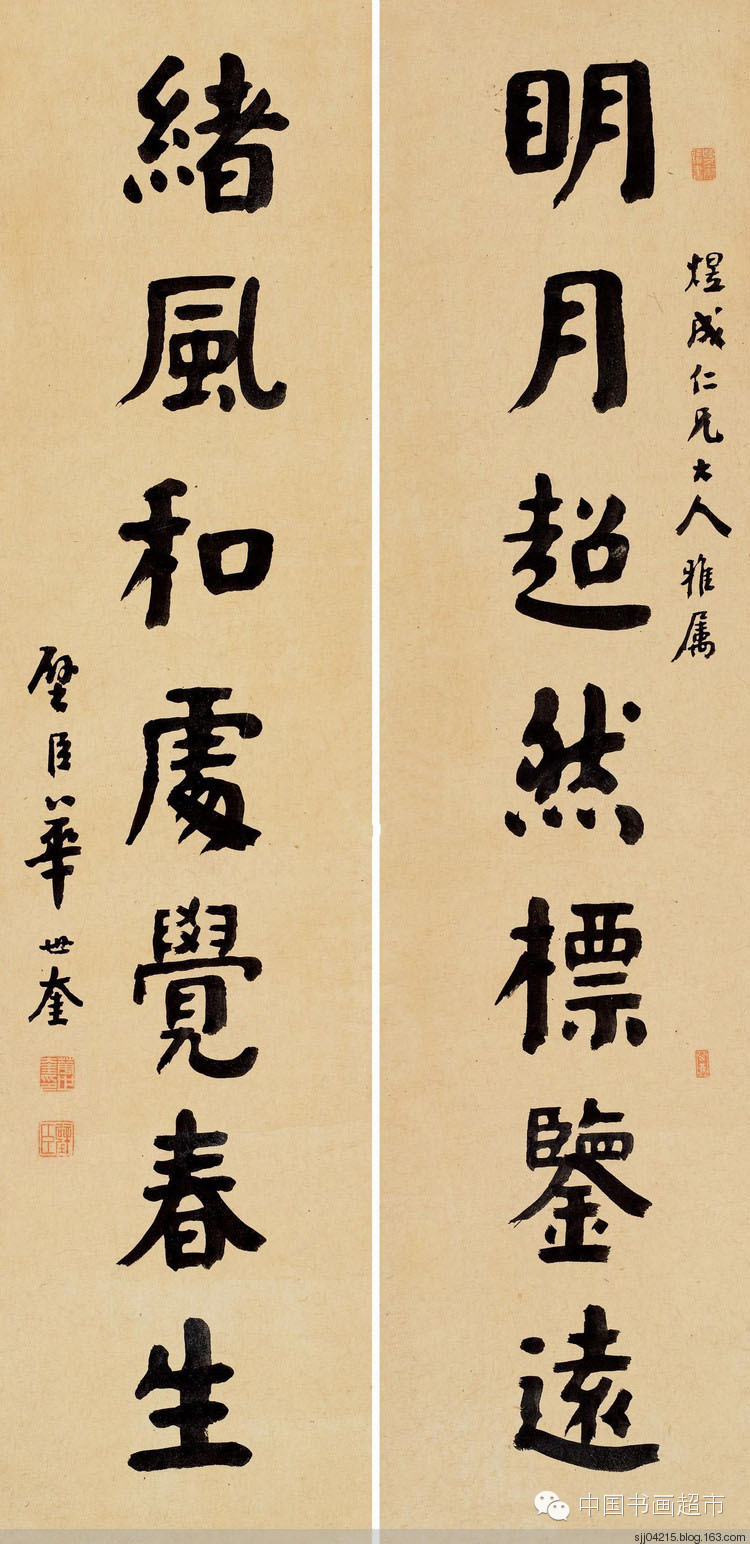 煜成仁兄大人雅属
明月超然標鑒遠
緒風和處覺春生
璧臣華世奎
中国书画超市
sjj04215.blog.163.com